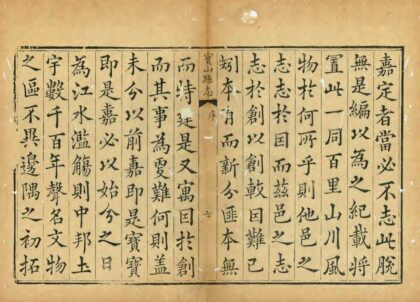 嘉定者當必不志此脫
無是編以為之紀載將
置此一同百里山川風
物於何所乎則他邑之
志志於因而茲邑之志
志於創以創較因難已
矧本有而新分匪本無
寶山縣志
序
而特建是又寓因於創
而其事為更難何則蓋
未分以前嘉即是寶寶
即是嘉必以始分之日
為江水濫觴則中邦土
宇數千百年聲名文物
之區不異邊隅之初拓